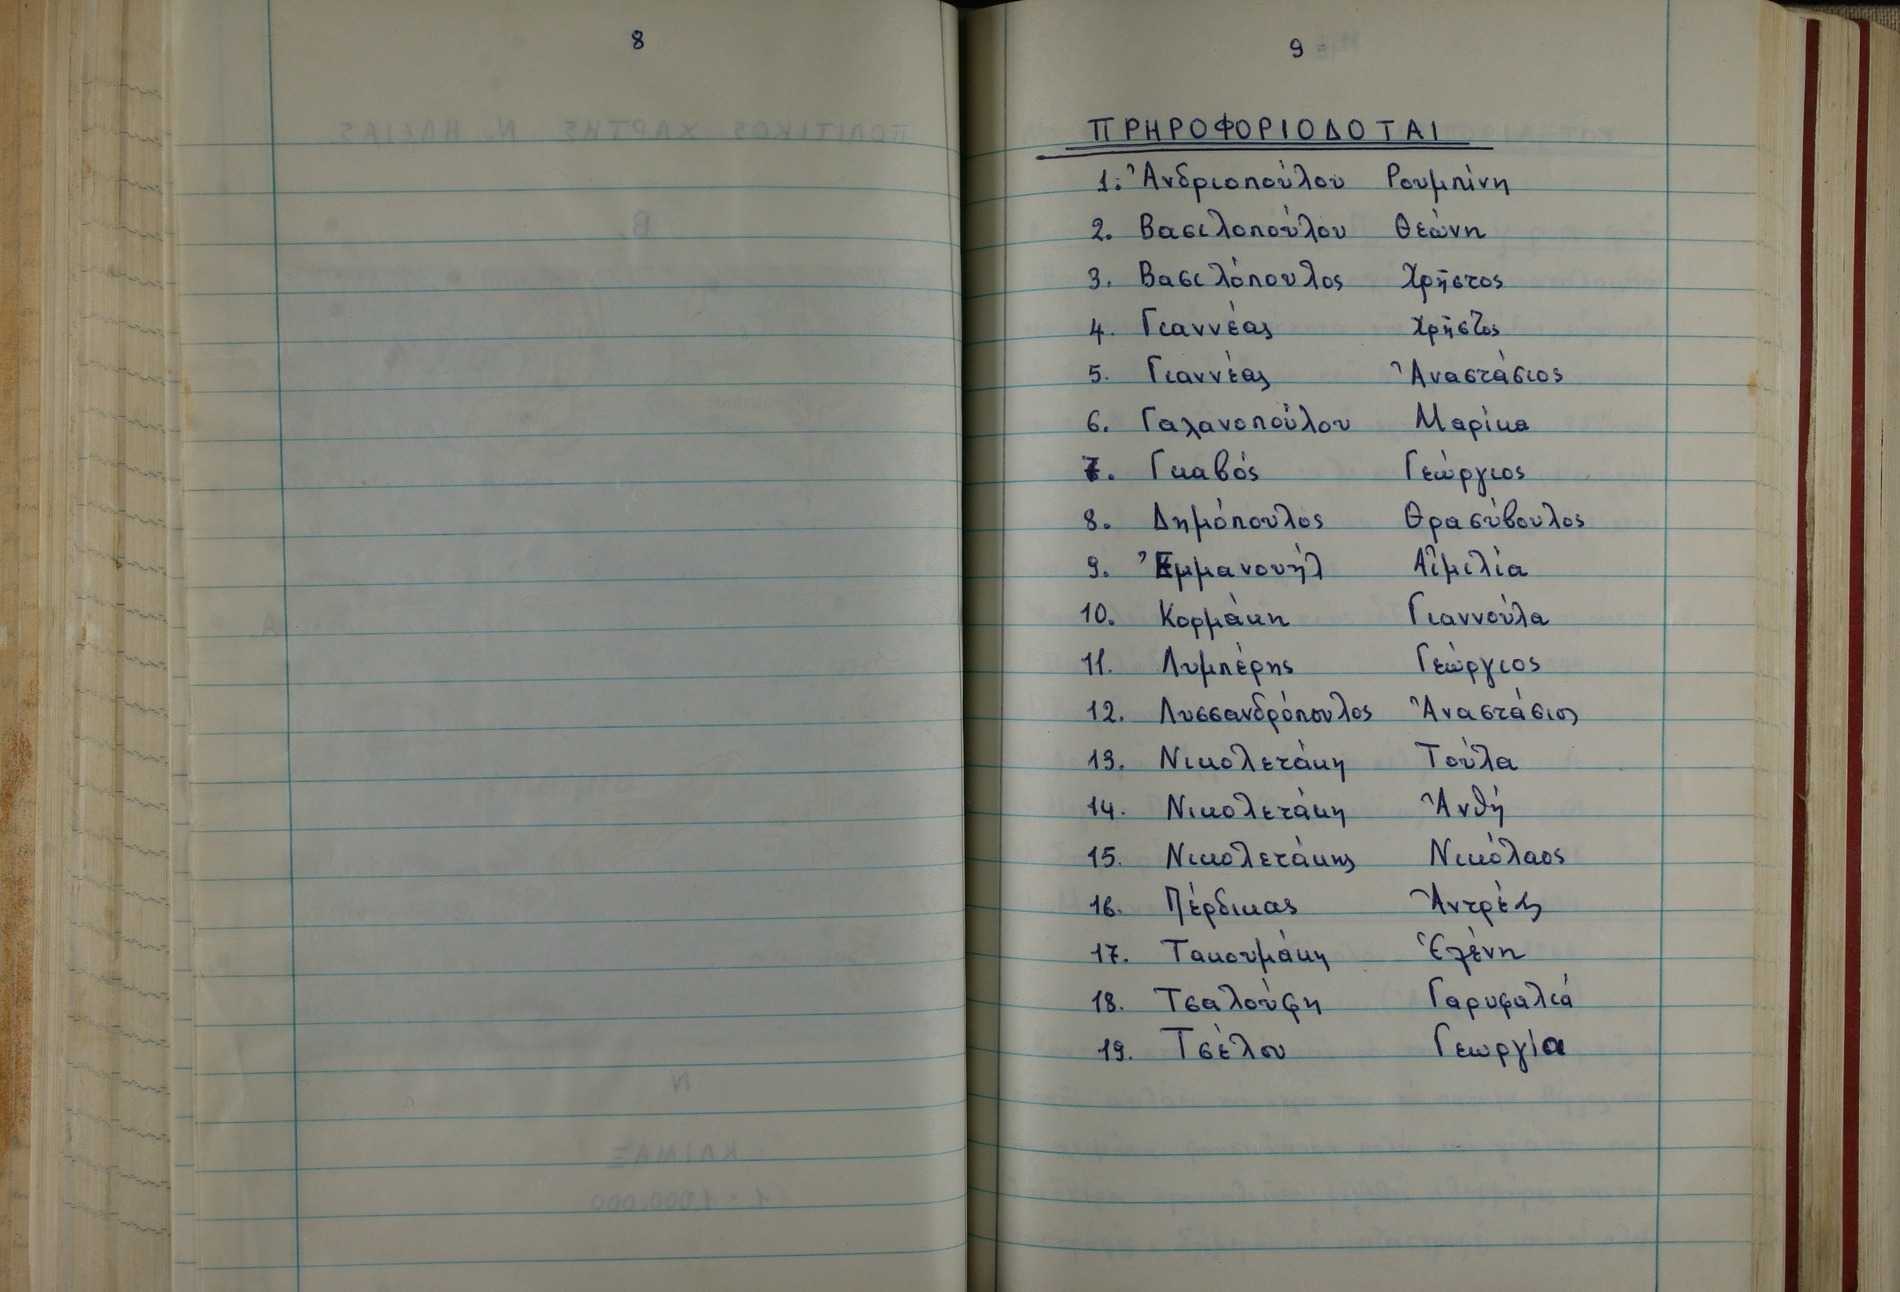 8
9
ΠΡΗΡΟΦΟΡΙΟΔΟΤΑΙ
1. Ἀνδριοπούλου Ρουμπίνη
2. Βασιλοπούλου Θεώνη
3. Βασιλόπουλος Χρῆστος
4. Γιαννέας Χρῆστος
5. Γιαννέας Ἀναστάσιος
6. Γαλανοπούλου Μαρίκα
7. Γκαβός Γεώργιος
8. Δημόπουλος Θρασύβουλος
9. Ἐμμανουήλ Αἰμιλία
10. Κορμάκη Γιαννούλα
11. Λυμπέρης Γεώργιος
12. Λυσσανδρόπουλος Ἀναστάσιος
13. Νικολετάκη Τούλα
14. Νικολετάκη Ἀνθή
15. Νικολετάκης Νικόλαος
16. Πέρδικας Ἀντρέας
17. Τακουμάκη Ἑλένη
18. Τσαλούφη Γαρυφαλιά
19. Τσέλου Γεωργία